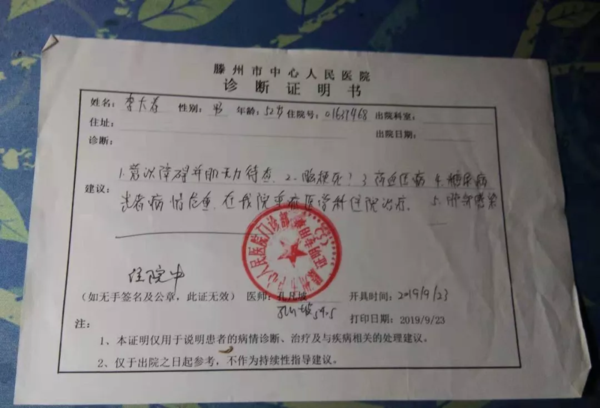 滕州市中心人民医院
诊断证明书
姓名：李大春 性别：男 年龄：52岁 住院号：01639468 出院科室：
住址： 出院日期：
诊断：
1.意识障碍并肌无力待查 2.脑梗死？ 3.高血压病 4.糖尿病
建议：
患者病情危重，在我院重症医学科住院治疗. 5.肺部感染
住院中
（如无手签名及公章，此证无效） 医师： 开具时间：2019/9/23
打印日期：2019/9/23
注：
1、本证明仅用于说明患者的病情诊断、治疗及与疾病相关的处理建议。
2、仅于出院之日起参考，不作为持续性指导建议。